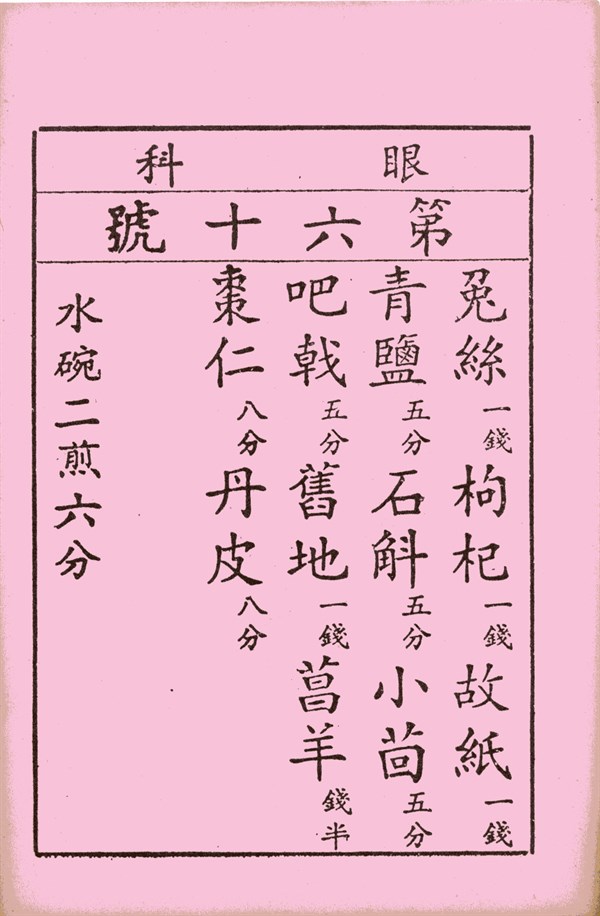 眼科
第六十號
兔絲一錢枸杞一錢故紙一錢
青鹽五分石斛五分小茴五分
吧戟五分舊地一錢菖羊錢半
棗仁八分丹皮八分
水碗二煎六分